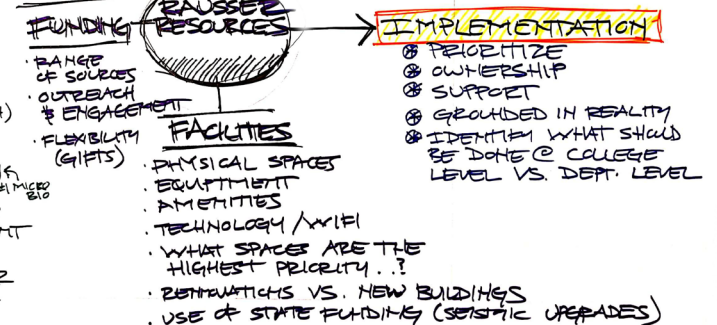 RAUSSER
RESOURCES
FUNDING
· RANGE
OF SOURCES
· OUTREACH
& ENGAGEMENT
· FLEXIBILITY
(GIFTS)
MICRO
BIO
FACILITIES
· PHYSICAL SPACES
· EQUIPTMENT
· AMENITIES
· TECHNOLOGY / WIFI
· WHAT SPACES ARE THE
HIGHEST PRIORITY..?
· RENNOVATIONS VS. NEW BUILDINGS
· USE OF STATE FUNDING (SEISMIC UPGRADES)
IMPLEMENTATION
⊛ PRIORITIZE
⊛ OWNERSHIP
⊛ SUPPORT
⊛ GROUNDED IN REALITY
⊛ IDENTIFY WHAT SHOULD
BE DONE @ COLLEGE
LEVEL VS. DEPT. LEVEL